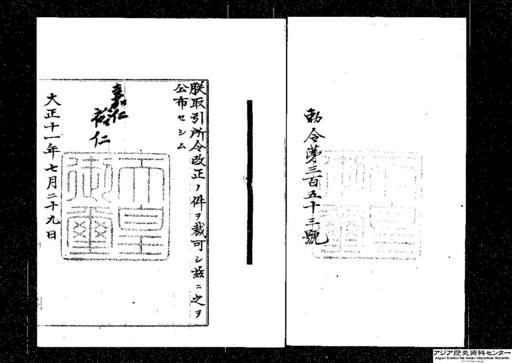 勅令第三百五十三號
朕取引所令改正ノ件ヲ裁可シ茲ニ之ヲ
公布セシム
嘉仁
裕仁
大正十一年七月二十九日
天皇
御璽
アジア歴史資料センター
Japan Center for Asian Historical Records